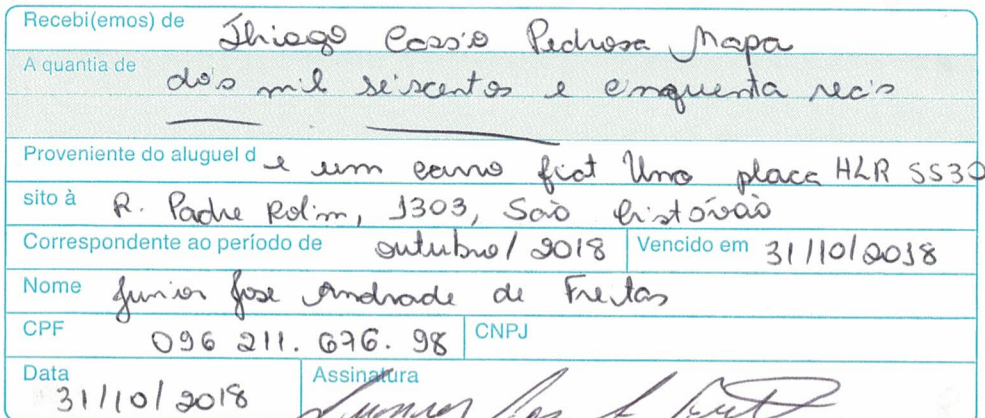 Recebi(emos) de Thiago Cassio Pedrosa Mapa
A quantia de dois mil seiscentos e cinquenta reais
Proveniente do aluguel d e um carro fiat Uno placa HLR 5530
sito à R. Padre Rolim, 1303, São Cristóvão
Correspondente ao período de outubro/2018 Vencido em 31/10/2018
Nome Junior Jose Andrade de Freitas
CPF 096 211. 676. 98 CNPJ
Data 31/10/2018 Assinatura